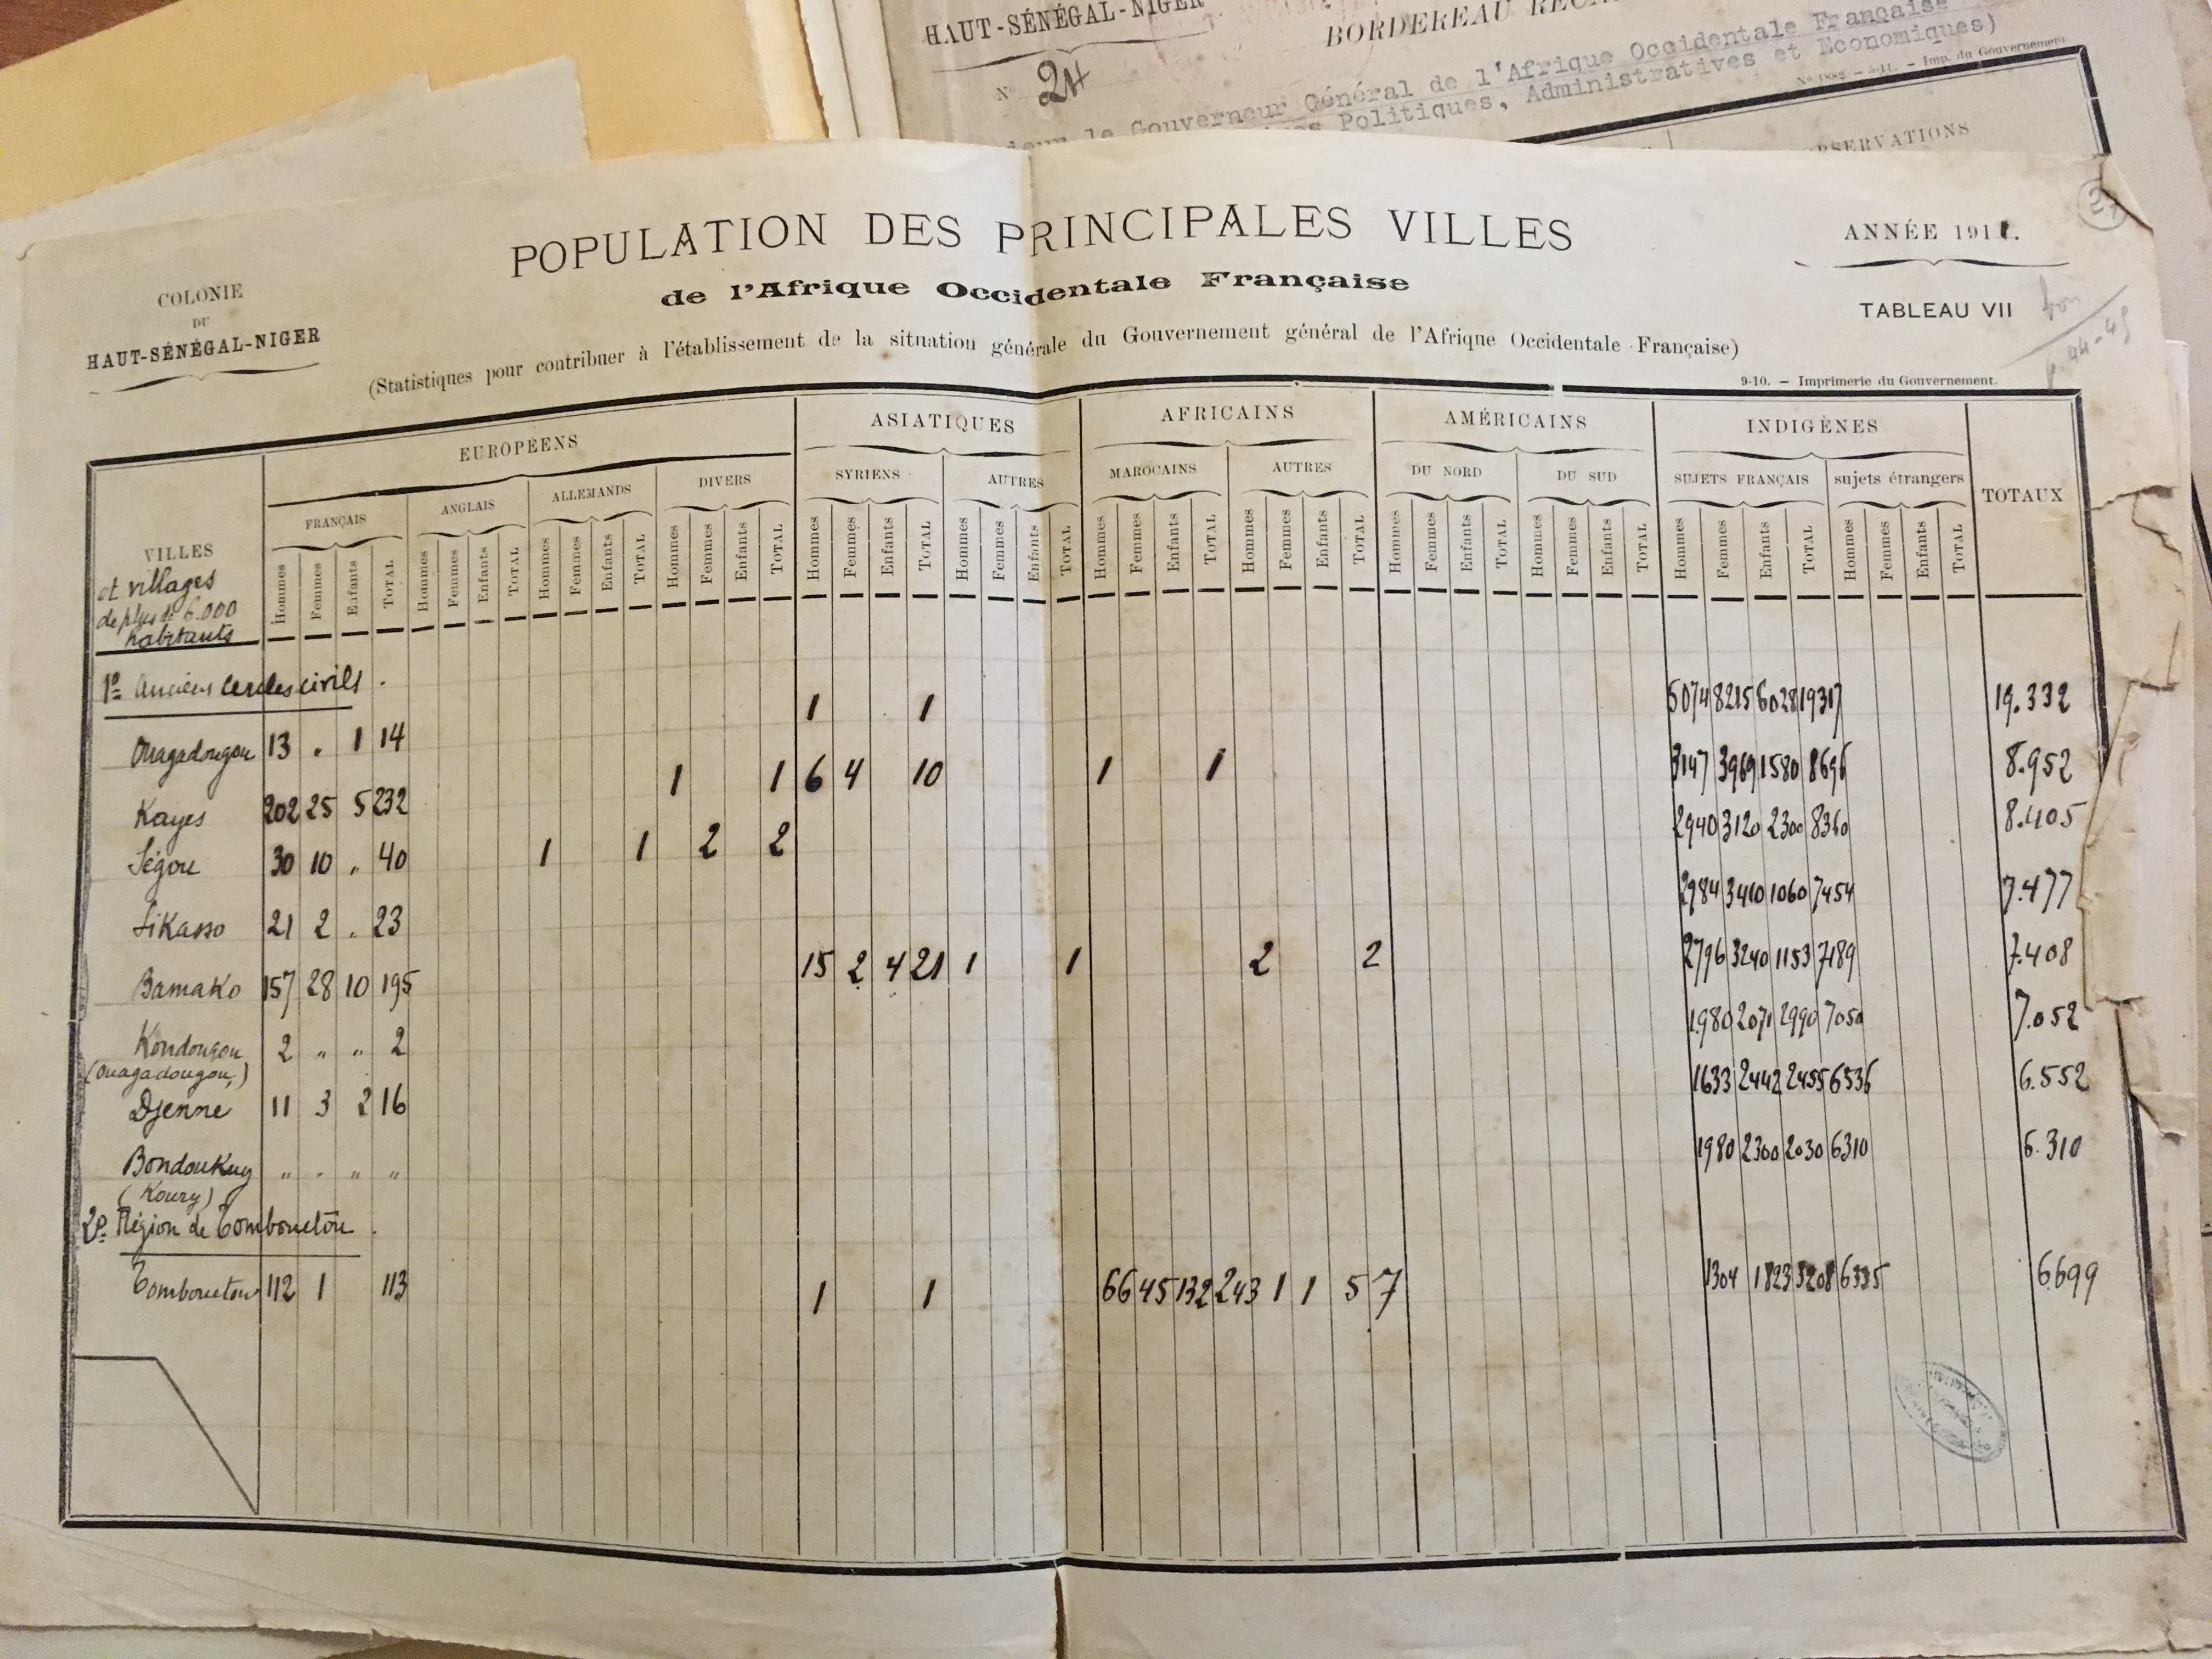 HAUT-SÉNÉGAL-NIGER
BORDEREAU
N° 24
le Gouverneur Général de l'Afrique Occidentale Française
Politiques, Administratives et Economiques)
Imp. du Gouvernement
27
POPULATION DES PRINCIPALES VILLES
de l'Afrique Occidentale Française
(Statistiques pour contribuer à l'établissement de la situation générale du Gouvernement général de l'Afrique Occidentale Française)
COLONIE
DU
HAUT-SÉNÉGAL-NIGER
ANNÉE 1911.
TABLEAU VII
bon
p. 44-45
9-10. — Imprimerie du Gouvernement.
EUROPÉENS ASIATIQUES AFRICAINS AMÉRICAINS INDIGÈNES TOTAUX
FRANÇAIS ANGLAIS ALLEMANDS DIVERS SYRIENS AUTRES MAROCAINS AUTRES DU NORD DU SUD SUJETS FRANÇAIS sujets étrangers
VILLES
et villages
de plus de 6.000
habitants
Hommes Femmes Enfants TOTAL Hommes Femmes Enfants TOTAL Hommes Femmes Enfants TOTAL Hommes Femmes Enfants TOTAL Hommes Femmes Enfants TOTAL Hommes Femmes Enfants TOTAL Hommes Femmes Enfants TOTAL Hommes Femmes Enfants TOTAL Hommes Femmes Enfants TOTAL Hommes Femmes Enfants TOTAL Hommes Femmes Enfants TOTAL Hommes Femmes Enfants TOTAL
1° Anciens Cercles civils.
Ouagadougou 13 . 1 14 1 1 5074 8215 6028 19317 19.332
Kayes 202 25 5 232 1 1 6 4 10 1 1 3147 3969 1580 8696 8.952
Ségou 30 10 . 40 1 1 2 2 2940 3120 2300 8360 8.405
Sikasso 21 2 . 23 2984 3410 1060 7454 7.477
Bamako 157 28 10 195 15 2 4 21 1 1 2 2 2796 3240 1153 7189 7.408
Kondougou 2 " " 2 1980 2071 2990 7050 7.052
(Ouagadougou)
Djenne 11 3 2 16 1633 2442 2455 6536 6.552
Bondoukuy " " " " 1980 2300 2030 6310 6.310
(Koury)
2° Région de Tombouctou.
Tombouctou 112 1 113 1 1 66 45 132 243 1 1 5 7 1304 1823 3208 6335 6699